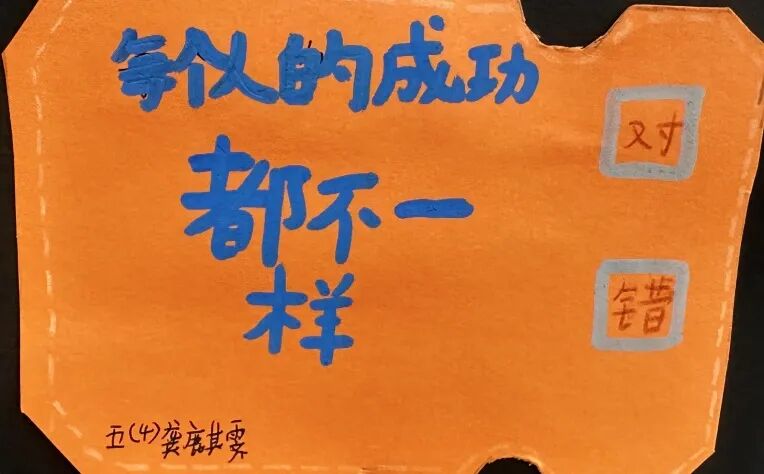 每个人的成功
都不一
样
对
错
五(4)龚麒雯